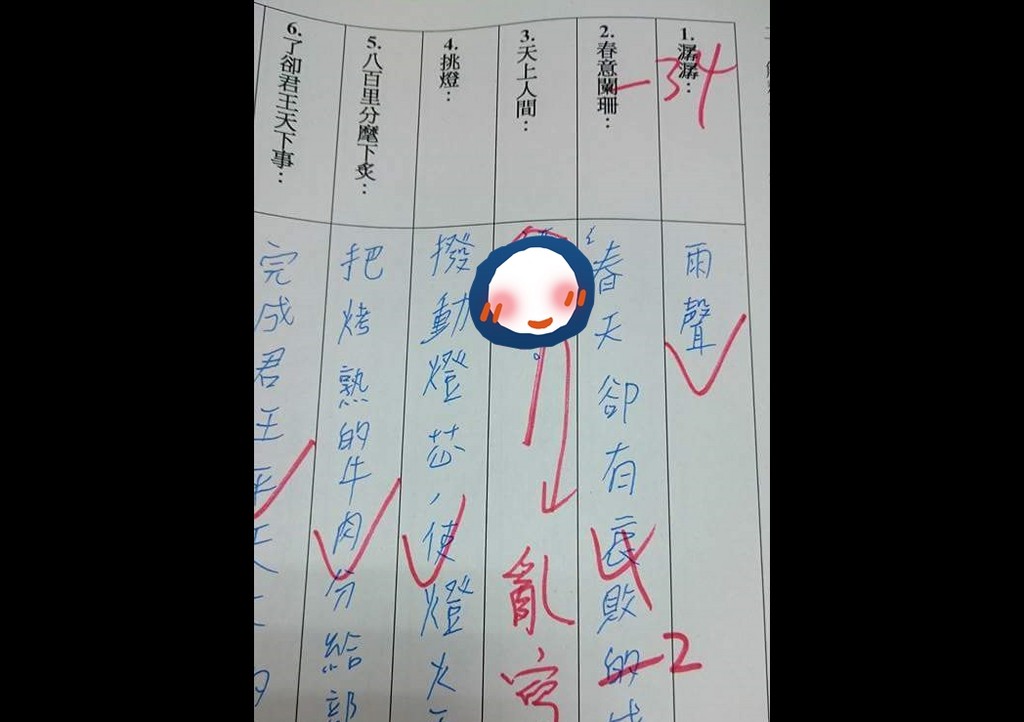 1.潺潺：
雨聲
-34
2.春意闌珊：
春天卻有衰敗的
-2
3.天上人間：
亂寫
4.挑燈：
撥動燈芯，使燈火
5.八百里分麾下炙：
把烤熟的牛肉分給部
6.了卻君王天下事：
完成君王平天下